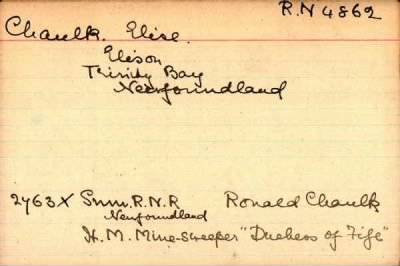 R.N 4862
Chaulk. Elise.
Elison
Trinity Bay
Newfoundland
2763X Snm. R.N.R Ronald Chaulk
Newfoundland
H.M. Mine-sweeper "Duchess of Fife"